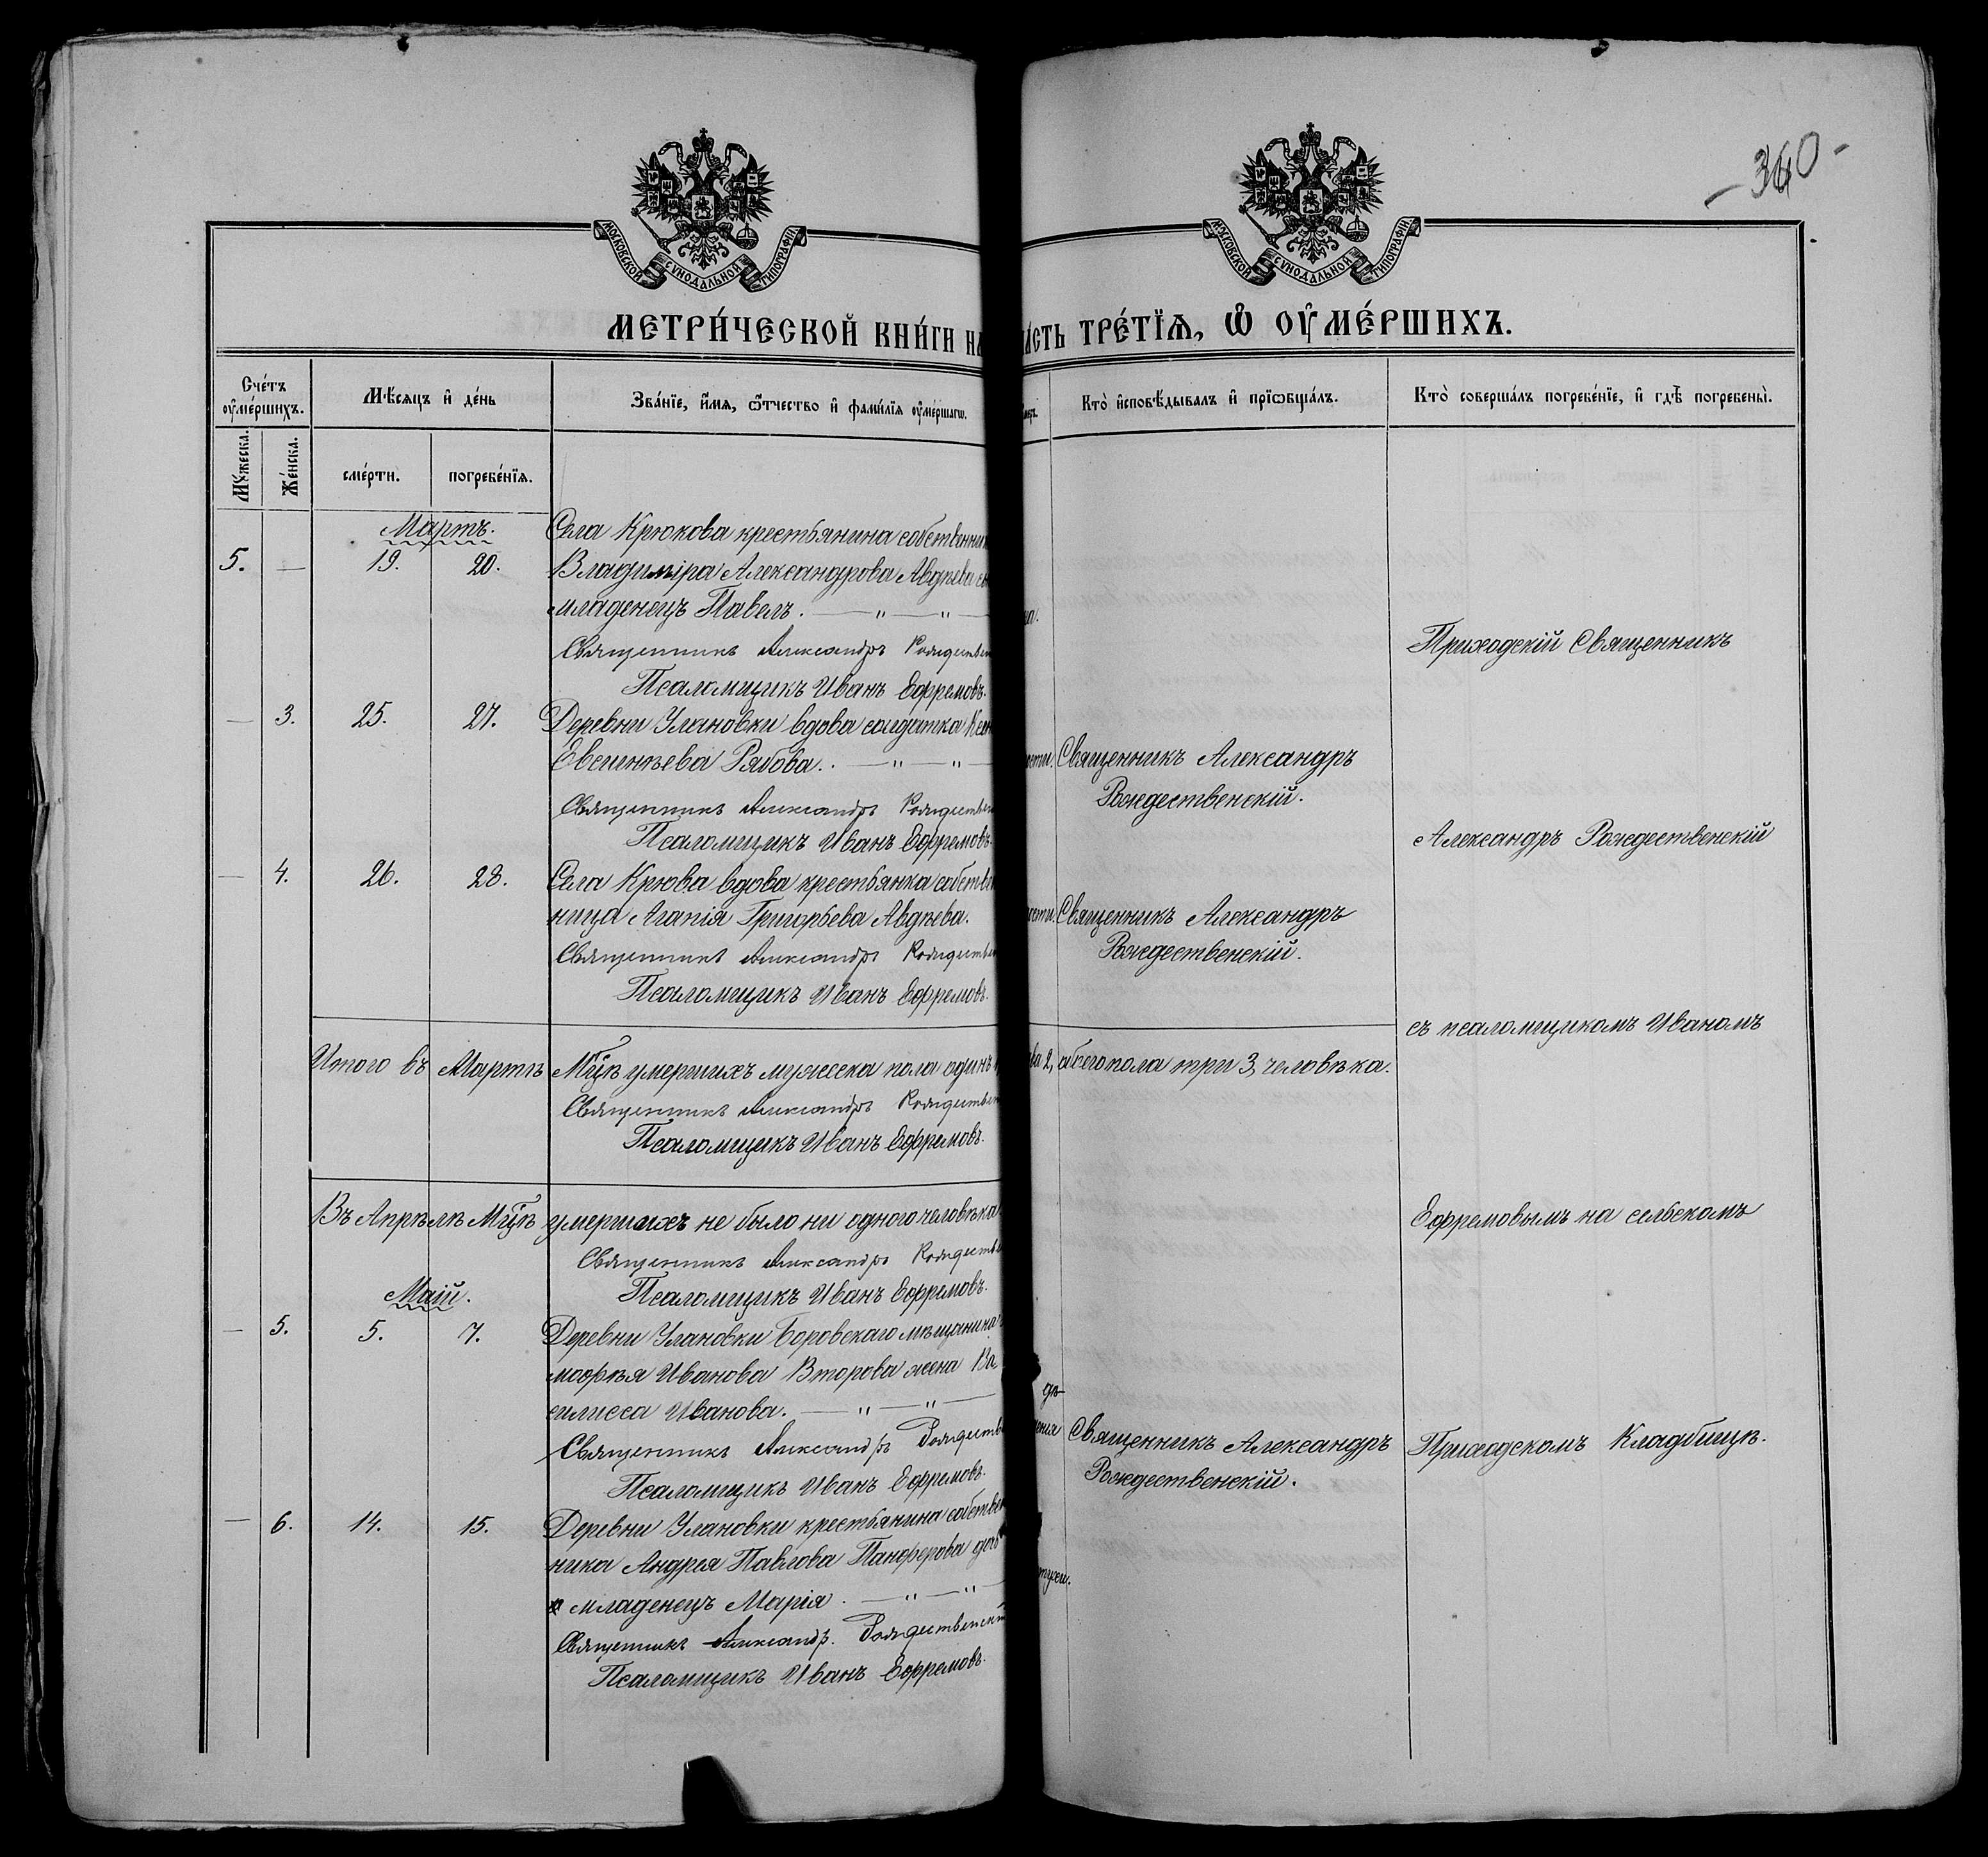 340
МОСКОВСКОЙ СѴНОДАЛЬНОЙ ТИПОГРАФІИ
МОСКОВСКОЙ СѴНОДАЛЬНОЙ ТИПОГРАФІИ
МЕТРИ́ЧЕСКОЙ КНИ́ГИ НА
ЧА́СТЬ ТРЕ́ТЇѦ, Ѽ ОУ҆МЕ́РШИХЪ.
Сче́тъ оу҆ме́ршихъ.
Мꙋ́жеска.
Же́нска.
Мѣ́сяцъ и҆ де́нь
сме́рти.
погребе́нїѧ.
Зва́нїе, и҆́мѧ, ѻ҆́тчество и҆ фами́лїѧ оу҆ме́ршагѡ.
Кто̀ и҆сповѣ́дывалъ и҆ прїѡбща́лъ.
Кто̀ соверша́лъ погребе́нїе, и҆ гдѣ̀ погребены̀.
Мартъ.
Села Крюкова крестьянина собственни
5. — 19. 20. Владиміра Александрова Авдѣева
младенецъ Павелъ. — „ — „ —
Священникъ Александръ Рождествен
Псаломщикъ Иванъ Ефремовъ.
Приходскій Священникъ
— 3. 25. 27. Деревни Улановки вдова солдатка
Евсигнѣева Рябова. — „ — „ —
Священникъ Александръ Рождествен
Псаломщикъ Иванъ Ефремовъ.
Священникъ Александръ
Рождественскій.
Александръ Рождественскій
— 4. 26. 28. Села Крюва вдова крестьянка собствен
ница Агапія Григорьева Авдѣева.
Священникъ Александръ Рождествен
Псаломщикъ Иванъ Ефремовъ.
Священникъ Александръ
Рождественскій.
съ псаломщикомъ Иваномъ
Итого въ Мартѣ Мцѣ умершихъ мужеска пола одинъ
2, обоего пола три 3, человѣка.
Священникъ Александръ Рождествен
Псаломщикъ Иванъ Ефремовъ.
Въ Апрѣлѣ Мцѣ умершихъ не было ни одного человѣка
Священникъ Александръ Рождестве
Псаломщикъ Иванъ Ефремовъ.
Ефремовымъ на сельскомъ
Маій.
— 5. 5. 7. Деревни Улановки Боровскаго мѣщанина
моѳея Иванова Второва жена Ва
силисса Иванова. — „ — „ —
Священникъ Александръ Рождестве
Псаломщикъ Иванъ Ефремовъ.
Священникъ Александръ
Рождественскій.
Приходскомъ Кладбищѣ.
— 6. 14. 15. Деревни Улановки крестьянина собствен
ника Андрея Павлова Панферова дочь
младенецъ Марія. — „ — „ —
Священникъ Александръ Рождественскій
Псаломщикъ Иванъ Ефремовъ.